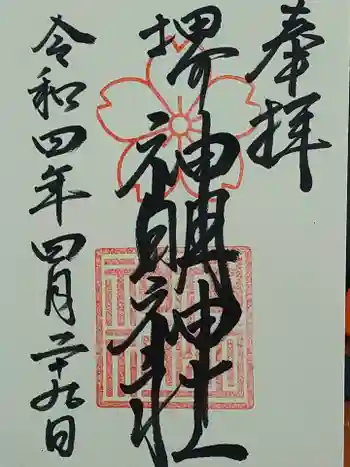 奉拝
堺神明神社
令和四年四月二十九日